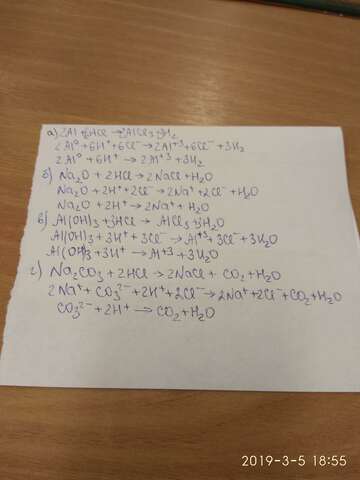 а) 2Al+6HCl → 2AlCl3+3H2
2Al⁰ + 6H⁺ + 6Cl⁻ → 2Al⁺³ + 6Cl⁻ + 3H2
2Al⁰ + 6H⁺ → 2Al⁺³ + 3H2
б) Na2O + 2HCl → 2NaCl + H2O
Na2O + 2H⁺ + 2Cl⁻ → 2Na⁺ + 2Cl⁻ + H2O
Na2O + 2H⁺ → 2Na⁺ + H2O
в) Al(OH)3 + 3HCl → AlCl3 + 3H2O
Al(OH)3 + 3H⁺ + 3Cl⁻ → Al⁺³ + 3Cl⁻ + 3H2O
Al(OH)3 + 3H⁺ → Al⁺³ + 3H2O
г) Na2CO3 + 2HCl → 2NaCl + CO2 + H2O
2Na⁺ + CO3²⁻ + 2H⁺ + 2Cl⁻ → 2Na⁺ + 2Cl⁻ + CO2 + H2O
CO3²⁻ + 2H⁺ → CO2 + H2O
2019-3-5 18:55